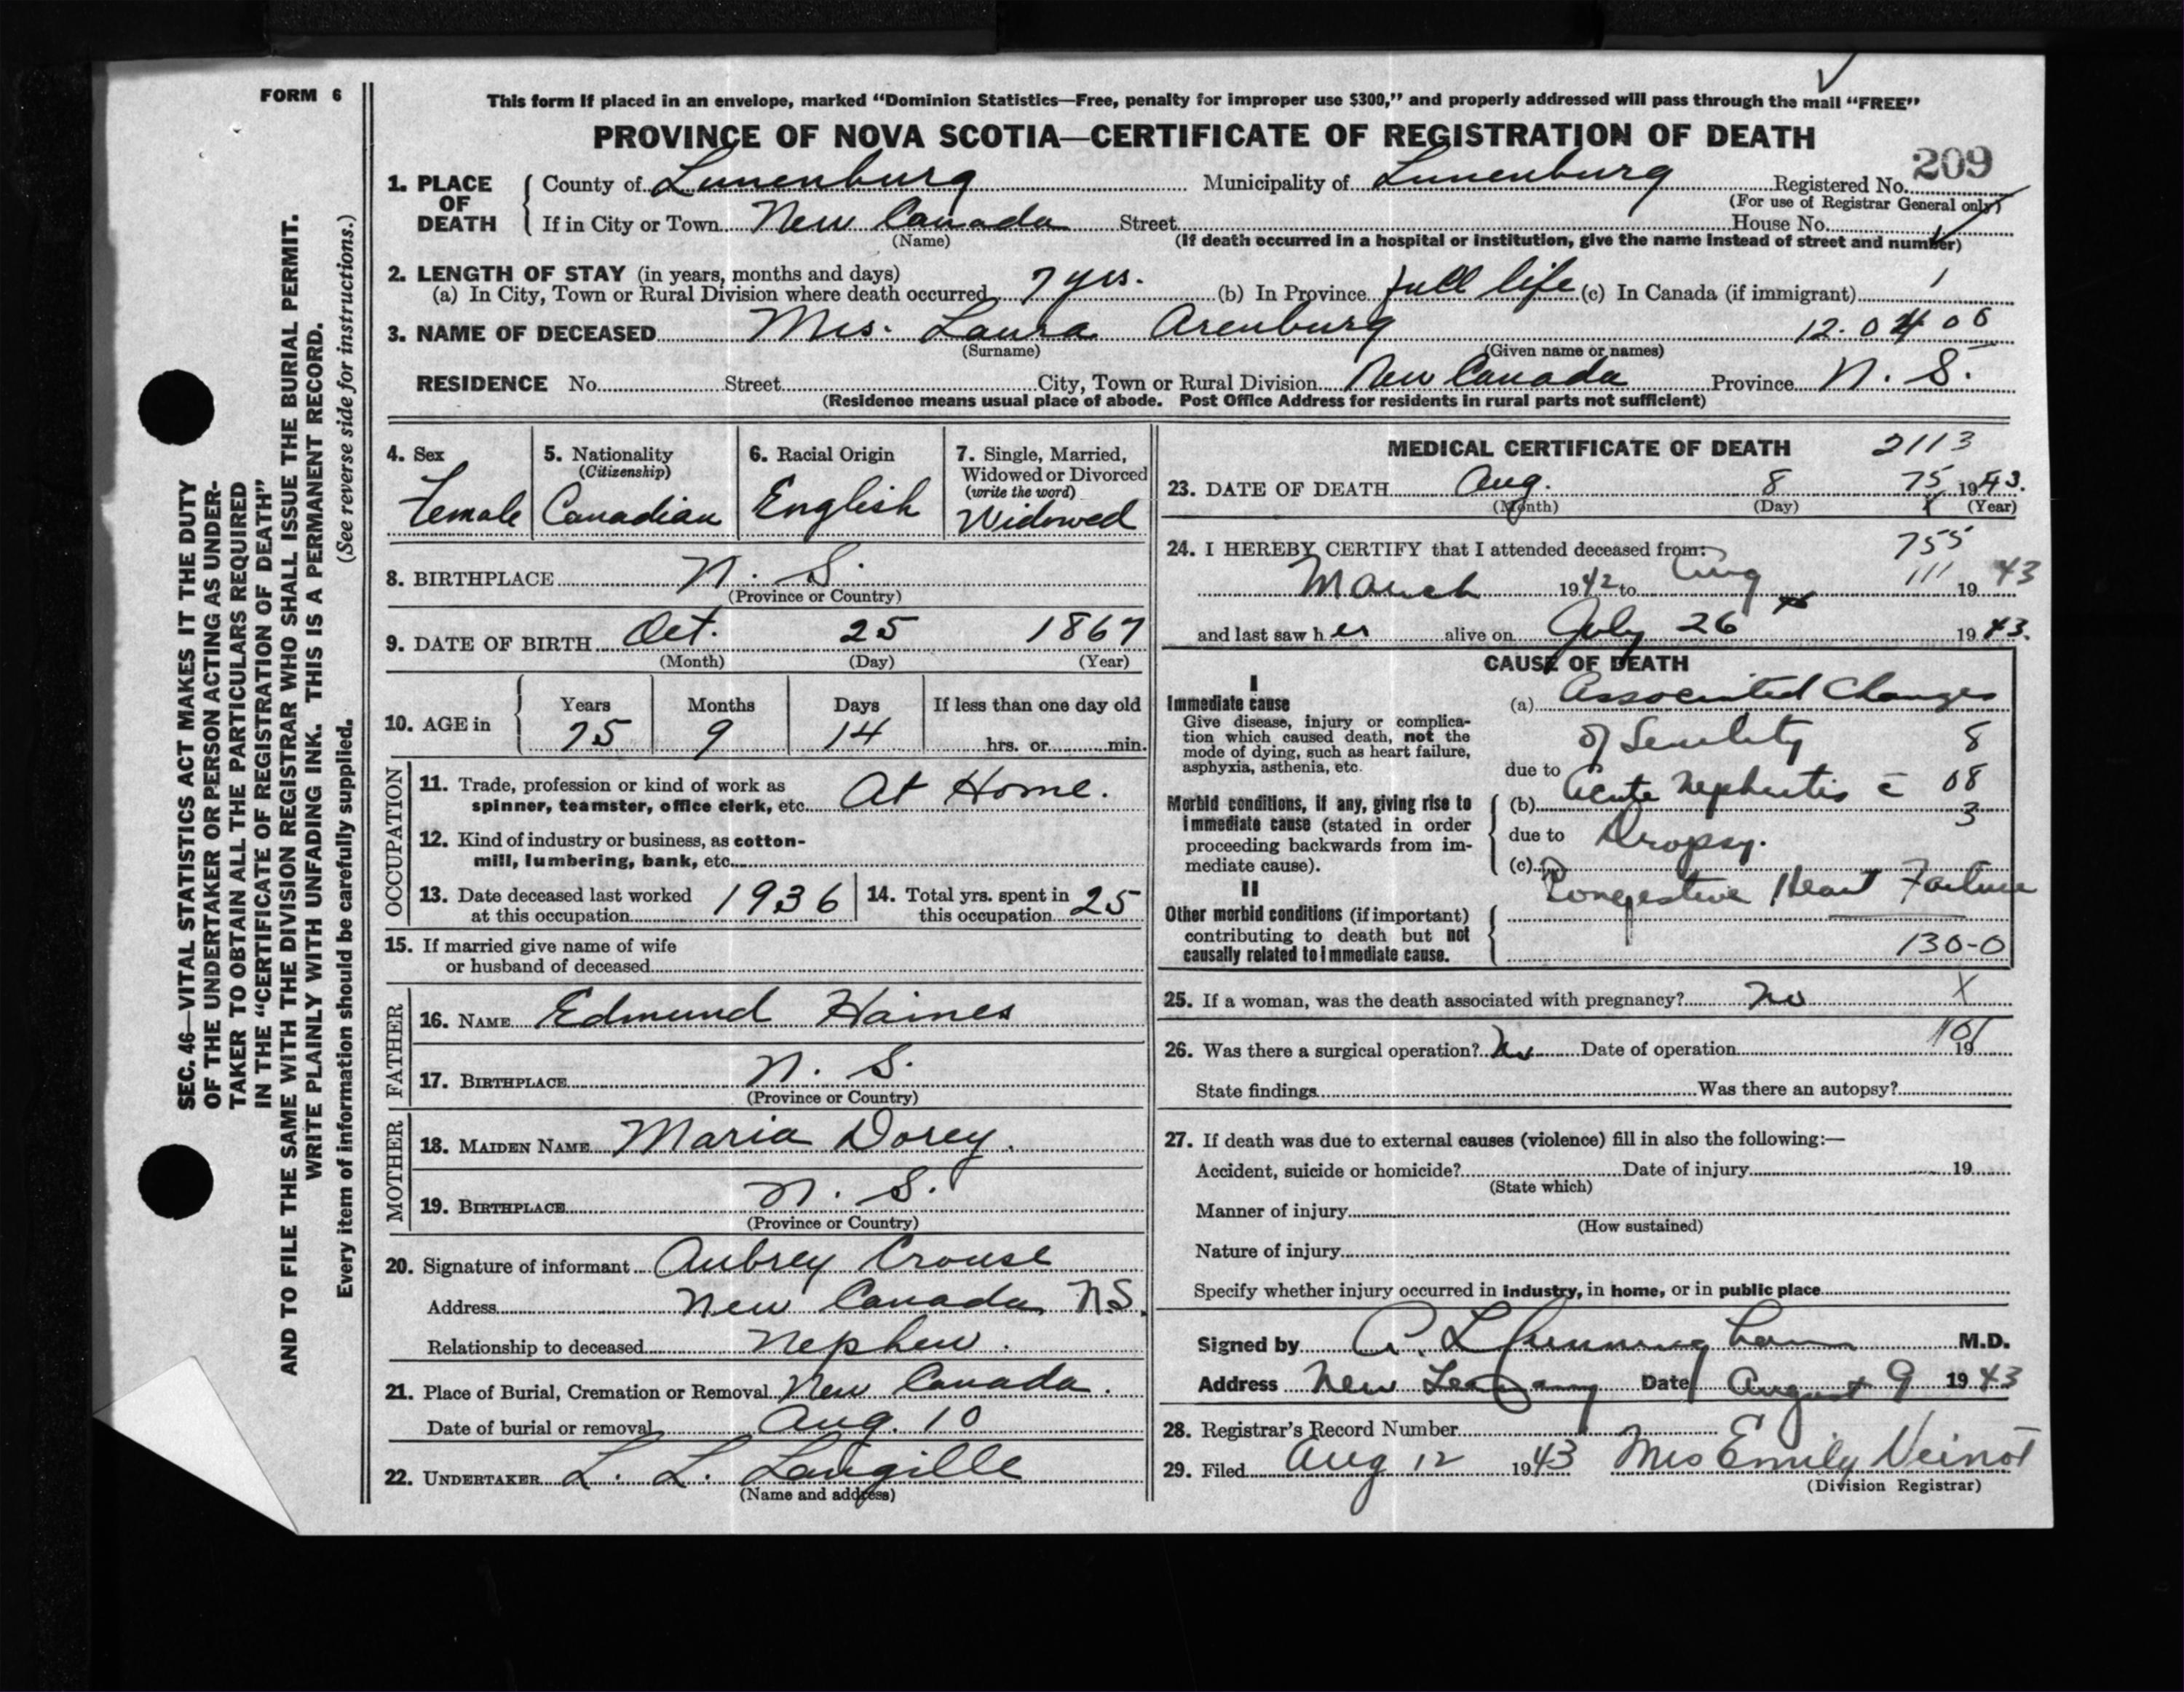 FORM 6
This form if placed in an envelope, marked “Dominion Statistics—Free, penalty for improper use $300,” and properly addressed will pass through the mail “FREE”
PROVINCE OF NOVA SCOTIA—CERTIFICATE OF REGISTRATION OF DEATH
209
1. PLACE OF DEATH County of Lunenburg Municipality of Lunenburg Registered No.
(For use of Registrar General only)
If in City or Town New Canada Street House No.
(Name) (If death occurred in a hospital or institution, give the name instead of street and number)
2. LENGTH OF STAY (in years, months and days)
(a) In City, Town or Rural Division where death occurred 7 yrs. (b) In Province full life (c) In Canada (if immigrant)
3. NAME OF DECEASED Mrs. Laura Arenburg
(Surname) (Given name or names)
RESIDENCE No. Street City, Town or Rural Division New Canada Province N. S.
(Residence means usual place of abode. Post Office Address for residents in rural parts not sufficient)
4. Sex
Female
5. Nationality
(Citizenship)
Canadian
6. Racial Origin
English
7. Single, Married,
Widowed or Divorced
(write the word)
Widowed
8. BIRTHPLACE N. S.
(Province or Country)
9. DATE OF BIRTH Oct. 25 1867
(Month) (Day) (Year)
10. AGE in Years Months Days If less than one day old
75 9 14 hrs. or min.
OCCUPATION
11. Trade, profession or kind of work as
spinner, teamster, office clerk, etc. At Home.
12. Kind of industry or business, as cotton-
mill, lumbering, bank, etc.
13. Date deceased last worked
at this occupation 1936
14. Total yrs. spent in
this occupation 25
15. If married give name of wife
or husband of deceased
FATHER
16. NAME Edmund Haines
17. BIRTHPLACE N. S.
(Province or Country)
MOTHER
18. MAIDEN NAME Maria Dorey.
19. BIRTHPLACE N. S.
(Province or Country)
20. Signature of informant Aubrey Crouse
Address New Canada, N.S.
Relationship to deceased Nephew.
21. Place of Burial, Cremation or Removal New Canada.
Date of burial or removal Aug. 10
22. UNDERTAKER L. L. Langille
(Name and address)
MEDICAL CERTIFICATE OF DEATH 2113
23. DATE OF DEATH Aug. 8 75 1943.
(Month) (Day) (Year)
24. I HEREBY CERTIFY that I attended deceased from: 755
March 1942 to Aug 111 1943
and last saw her alive on July 26th 1943.
CAUSE OF DEATH
I
Immediate cause
Give disease, injury or complica-
tion which caused death, not the
mode of dying, such as heart failure,
asphyxia, asthenia, etc.
(a) Associated Changes
of Senility 8
due to
Morbid conditions, if any, giving rise to
immediate cause (stated in order
proceeding backwards from im-
mediate cause).
(b) Acute Nephritis c̄ 08
3
due to Dropsy.
(c) Congestive Heart Failure
II
Other morbid conditions (if important)
contributing to death but not
causally related to immediate cause.
130-0
25. If a woman, was the death associated with pregnancy? No X
26. Was there a surgical operation? No Date of operation 19
State findings Was there an autopsy?
27. If death was due to external causes (violence) fill in also the following:—
Accident, suicide or homicide? Date of injury 19
(State which)
Manner of injury
(How sustained)
Nature of injury
Specify whether injury occurred in industry, in home, or in public place
Signed by M.D.
Address New Germany Date August 9 1943
28. Registrar’s Record Number
29. Filed Aug 12 1943 Mrs Emily Veinot
(Division Registrar)
SEC. 46—VITAL STATISTICS ACT MAKES IT THE DUTY
OF THE UNDERTAKER OR PERSON ACTING AS UNDER-
TAKER TO OBTAIN ALL THE PARTICULARS REQUIRED
IN THE “CERTIFICATE OF REGISTRATION OF DEATH”
AND TO FILE THE SAME WITH THE DIVISION REGISTRAR WHO SHALL ISSUE THE BURIAL PERMIT.
WRITE PLAINLY WITH UNFADING INK. THIS IS A PERMANENT RECORD.
Every item of information should be carefully supplied. (See reverse side for instructions.)